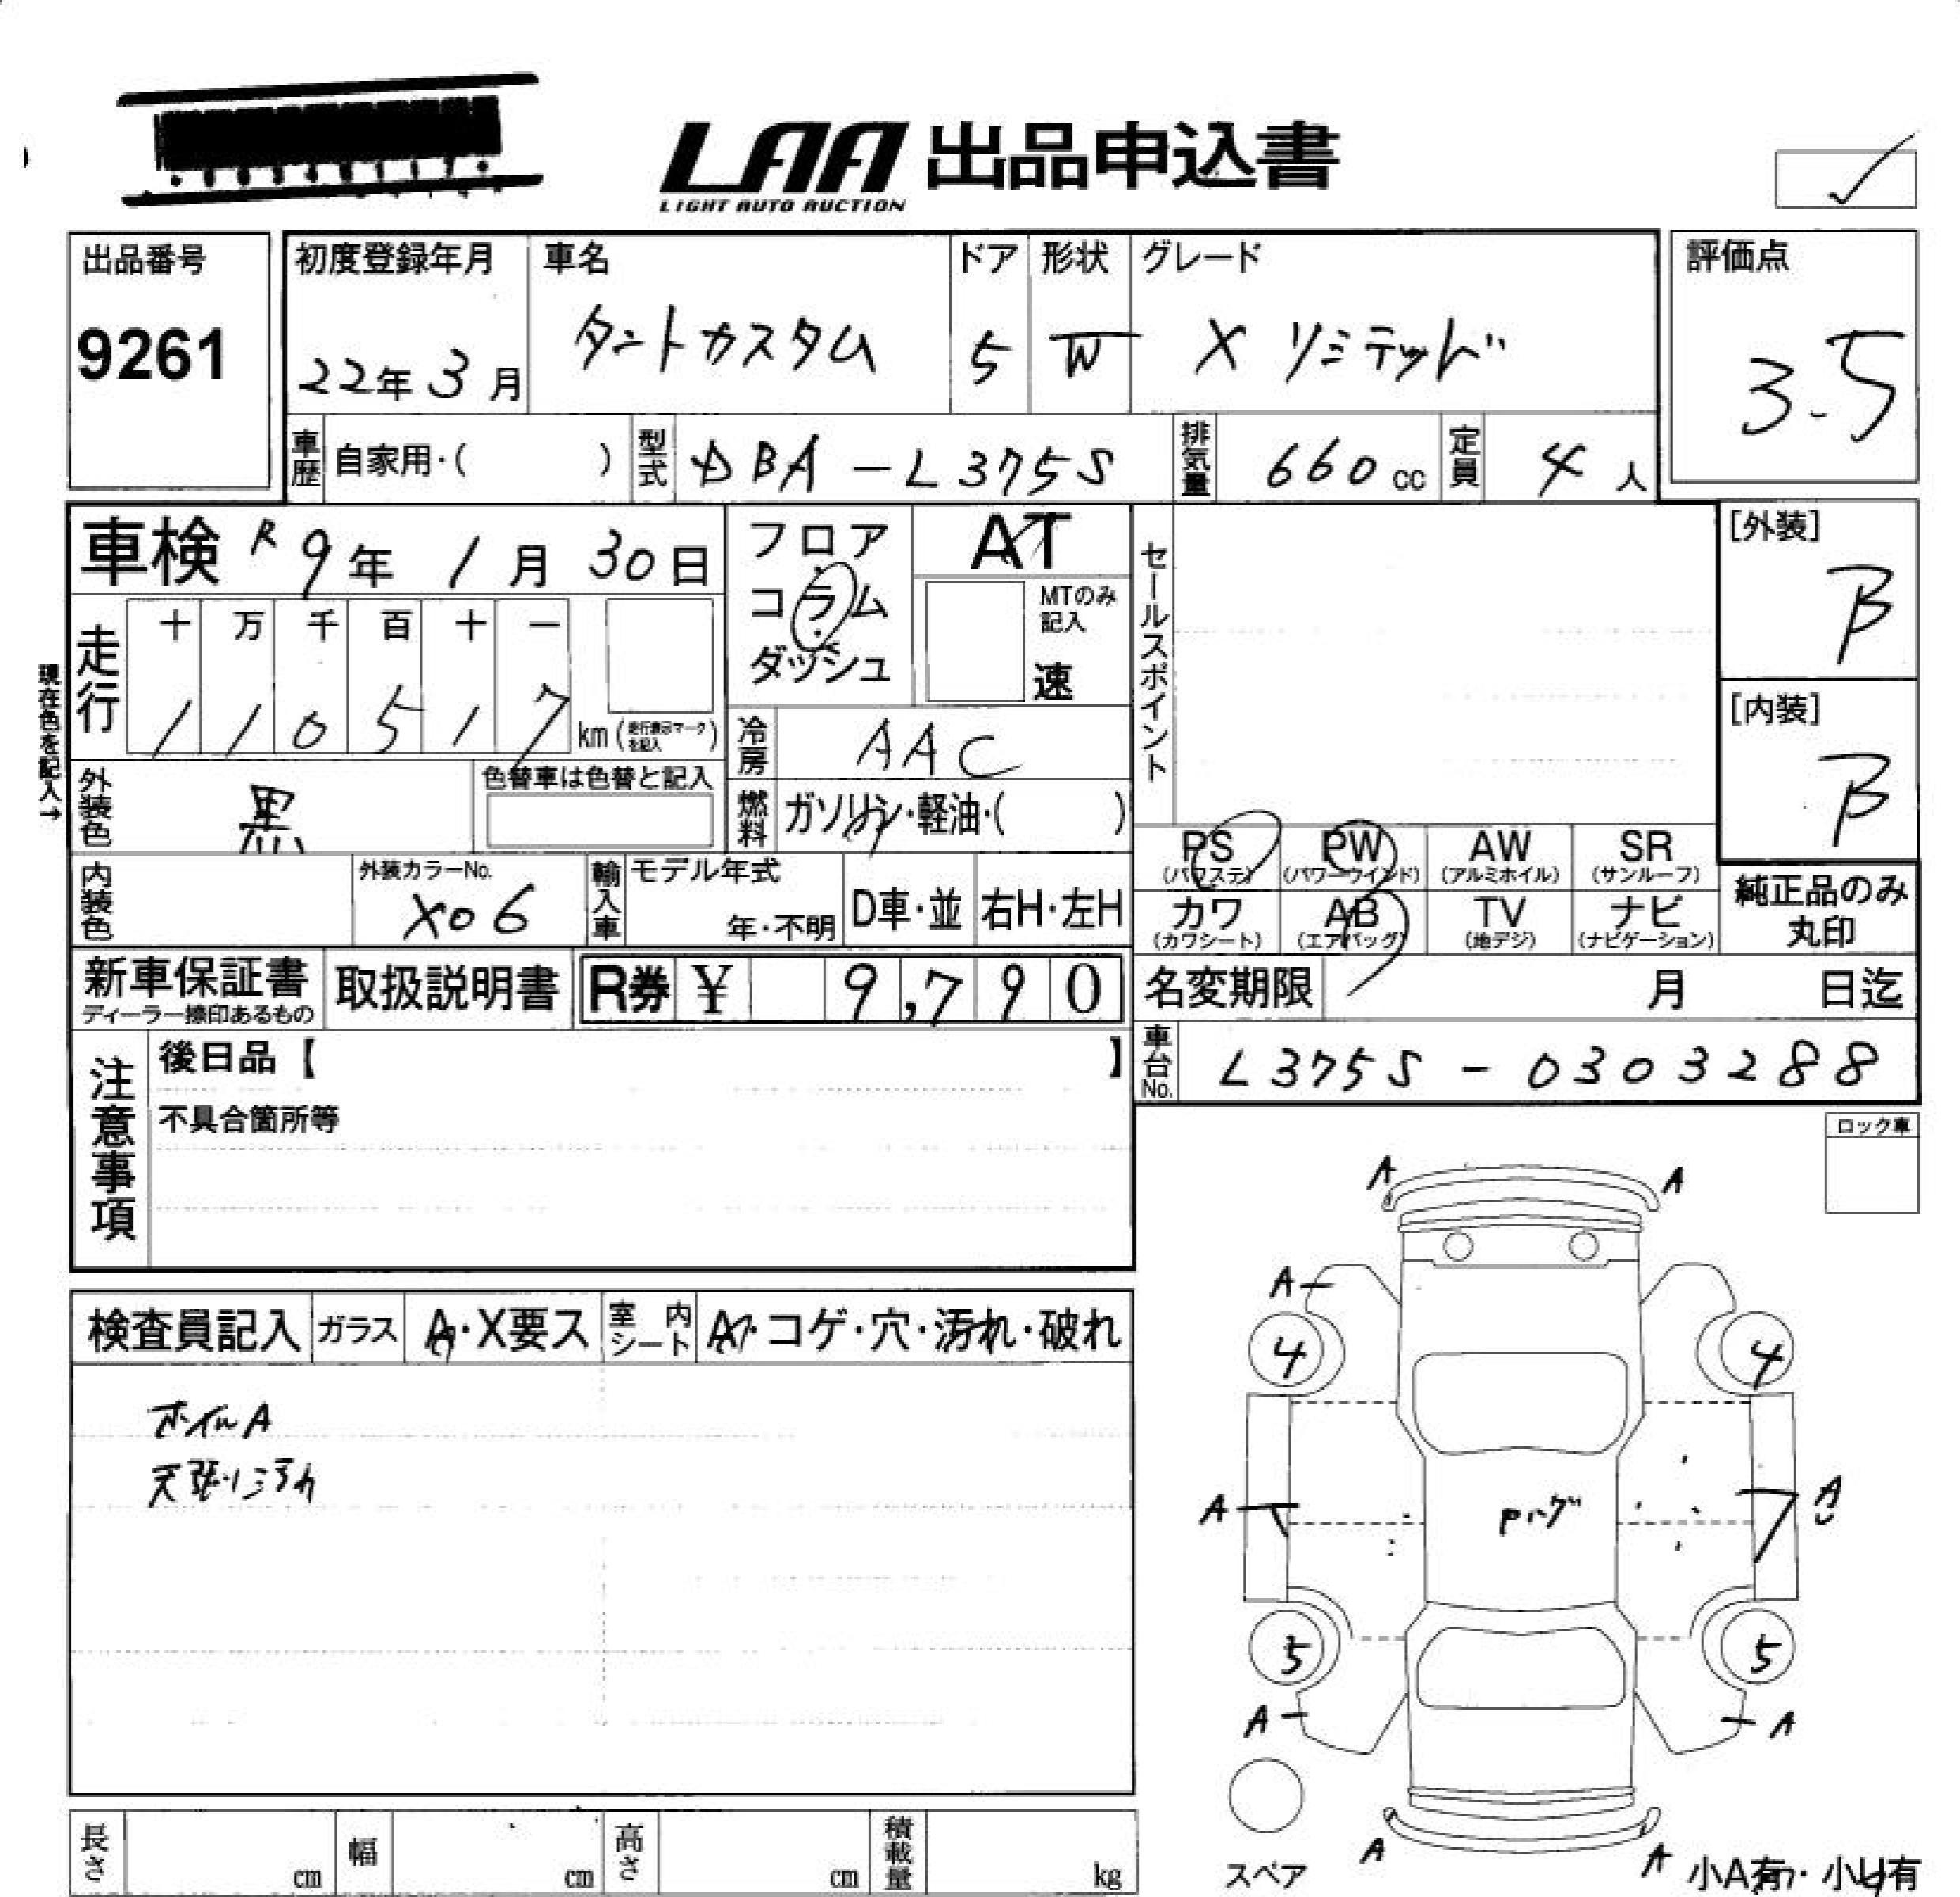 LAA 出品申込書
LIGHT AUTO AUCTION
出品番号
9261
初度登録年月
22年 3月
車名
タントカスタム
ドア
5
形状
W
グレード
X リミテッド
評価点
3.5
車歴 自家用・( )
型式 DBA-L375S
排気量 660 cc
定員 4 人
車検 R9年 1月 30日
フロア
コラム
ダッシュ
AT
MTのみ
記入
速
セールスポイント
[外装]
B
[内装]
B
現在色を記入→
走行
十 万 千 百 十 一
1 1 0 5 1 7 km (走行表示マークを記入)
冷房 AAC
外装色 黒
色替車は色替と記入
燃料 ガソリン・軽油・( )
PS (パワステ)
PW (パワーウインド)
AW (アルミホイル)
SR (サンルーフ)
カワ (カワシート)
AB (エアバッグ)
TV (地デジ)
ナビ (ナビゲーション)
純正品のみ
丸印
内装色
外装カラーNo.
X06
輸入車
モデル年式
年・不明
D車・並
右H・左H
新車保証書
ディーラー捺印あるもの
取扱説明書
R券 ¥ 9,790
名変期限 月 日迄
車台No. L375S-0303288
注意事項
後日品【 】
不具合箇所等
ロック車
検査員記入
ガラス A・X要ス
室内シート A・コゲ・穴・汚れ・破れ
ホイルA
天張り汚れ
A A
A
4 4
A A
Pハゲ
5 5
A A
A A
スペア
小A有・小U有
長さ cm
幅 cm
高さ cm
積載量 kg